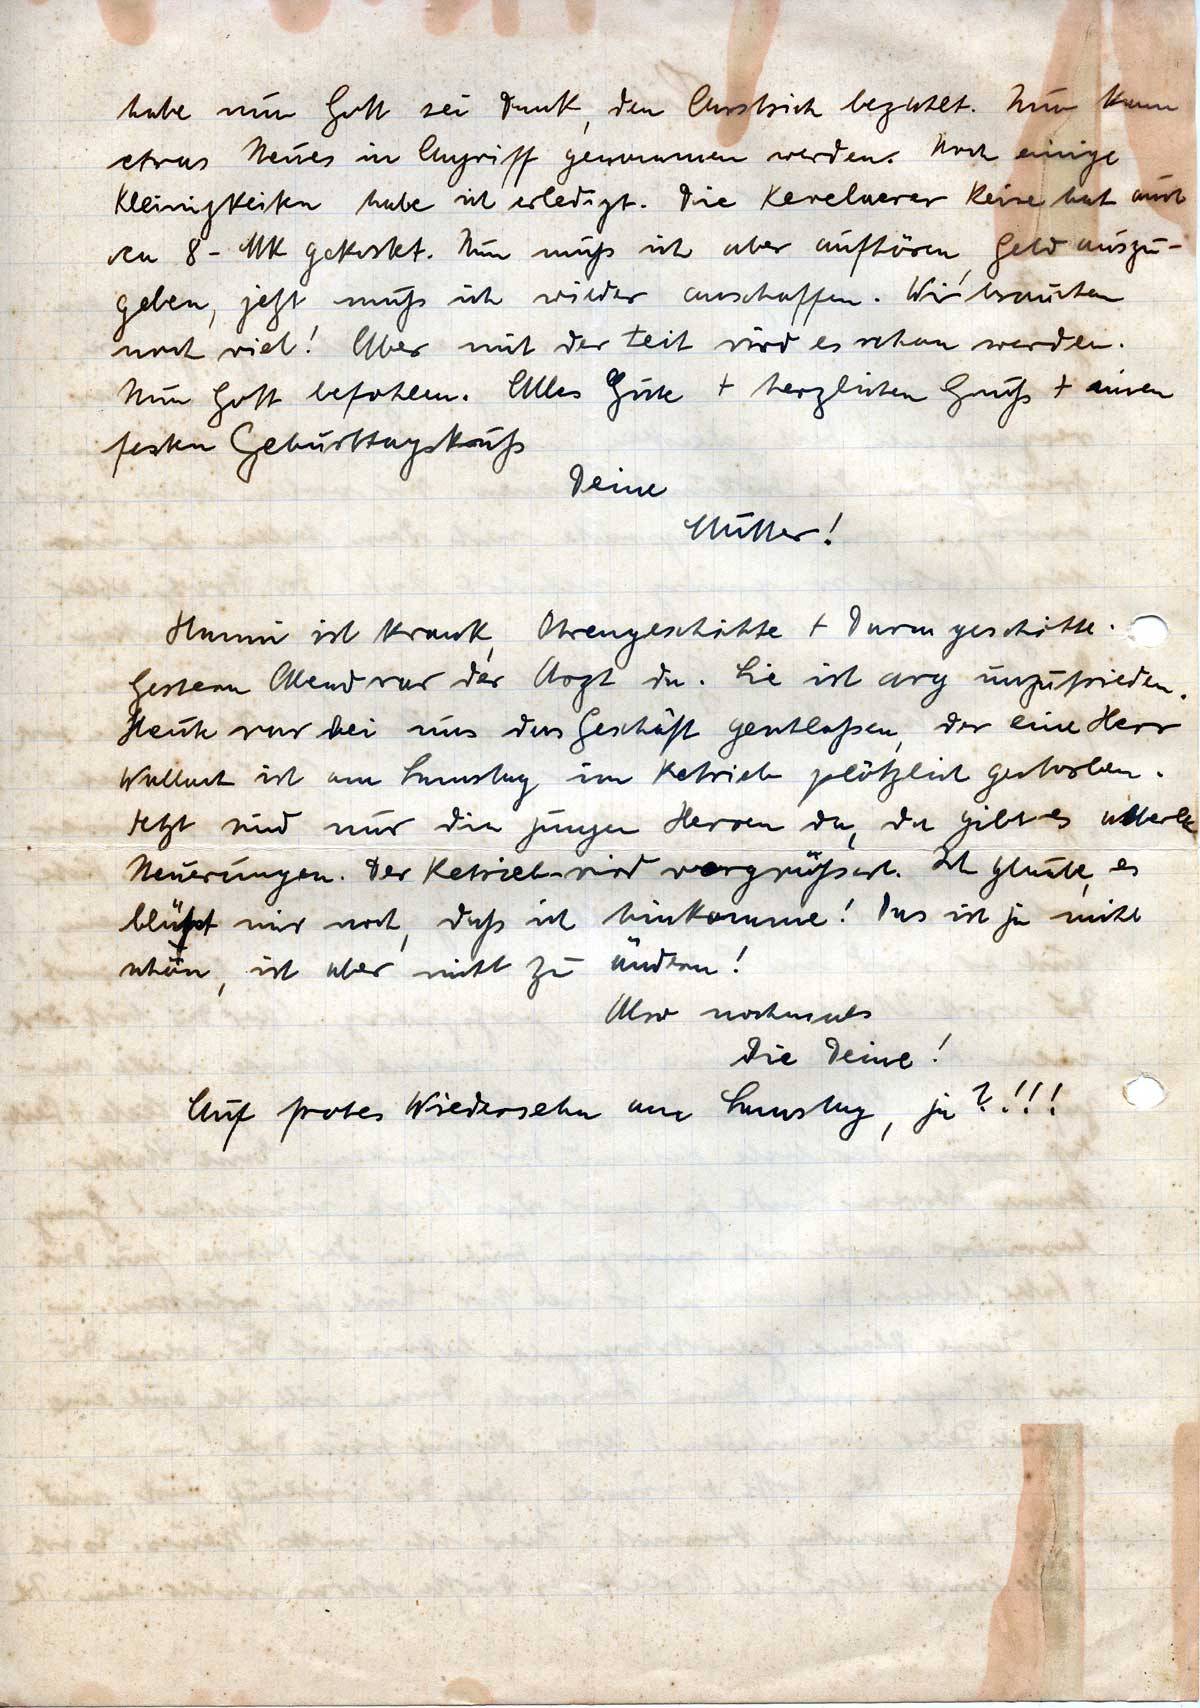 habe nun Gott sei Dank, den Anstrich bezahlt. Nun kann
etwas Neues in Angriff genommen werden. Noch einige
Kleinigkeiten habe ich erledigt. Die Kevelaerer Reise hat auch
ca 8 - MK gekostet. Nun muß ich aber aufhören, Geld auszu-
geben, jetzt muß ich wieder anschaffen. Wir brauchen
noch viel! Aber mit der Zeit wird es schon werden.
Nun Gott befohlen. Alles Gute + herzlichen Gruß + einen
festen Geburtstagskuß
Deine
Mutter!
Hanni ist krank, Ohrengeschichte + Darmgeschichte.
Gestern Abend war der Arzt da. Sie ist arg unzufrieden.
Heute war bei uns das Geschäft geschlossen, der eine Herr
Wallach ist am Samstag im Betrieb plötzlich gestorben.
Jetzt sind nur die jungen Herren da, da gibt es allerlei
Neuerungen. Der Betrieb wird vergrößert. Ich glaube, es
blüht mir noch, daß ich hinkomme! Das ist ja nicht
schön, ist aber nicht zu ändern!
Also nochmals
Die Deine!
Auf frohes Wiedersehn am Samstag, ja?!!!